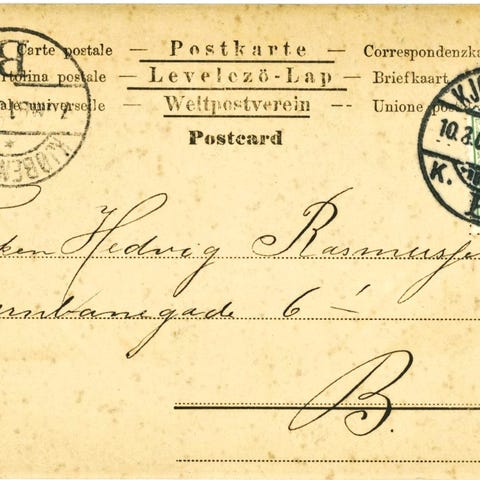 Carte postale — Postkarte — Correspondenzka
rtolina postale — Levelező-Lap — Briefkaart
ale universelle — Weltpostverein — Unione po
Postcard
B
KJØBEN
KJØ
10.3.0
K.
ken Hedvig Rasmusse
rnbanegade 6 -
B.